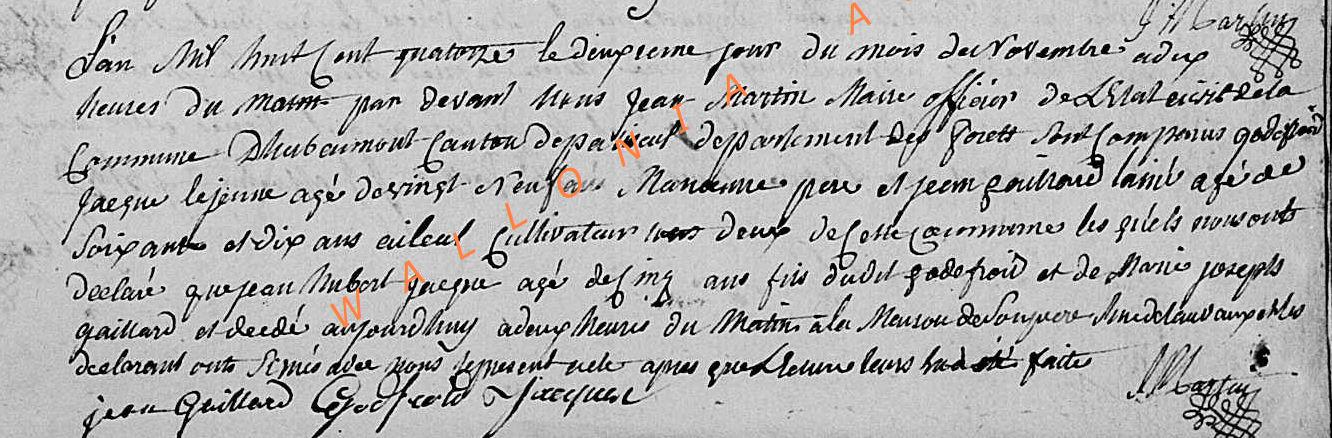 J Martin
L'an Mil huit Cent quatorze le deuxieme jour du mois de Novembre a deux
heures du matin par devant Nous Jean Martin Maire officier de L'Etat civil de la
Commune D'hubermont Canton de paliseul departement des forett sont Comparus godefroid
Jacque le jeune agé de vingt Neuf ans Manœuvre pere et jean gaillard lainé agé de
Soixante et dix ans aileul Cultivateur tous deux de Cette Commune les quels nous ont
declaré que jean hubert jacque agé de Cinq ans fils dudit godefroid et de Marie josephs
gaillard et decdé aujourdhuy a deux heures du Matin a la Maison de Son pere et les
declarant onts Signés avec nous le present acte apres que Lecture leurs had eté faite
jean Gaillard Godfroid Jacques J Martin
WALLONIA